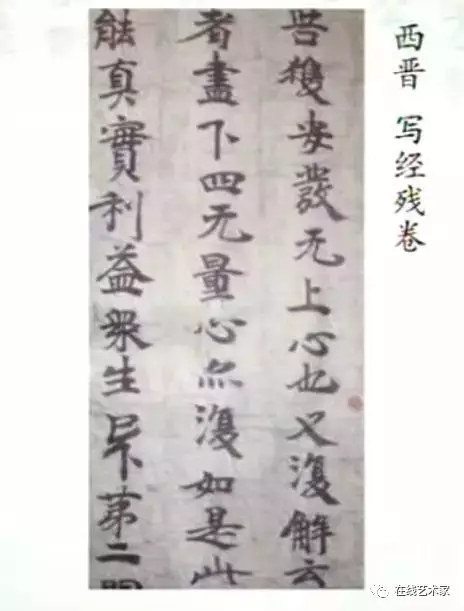 西晋 写经残卷
獲安發无上心也又復解云
者盡下四无量心亦復如是此
能真實利益眾生已下苐二
在线艺术家